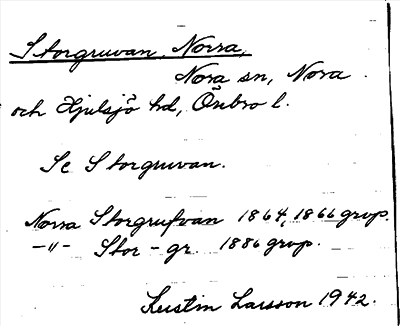 Storgruvan, Norra,
Nora sn, Nora
och Hjulsjö hd, Örebro l.
Se Storgruvan.
Norra Storgrufvan 1864, 1866 grup.
–"– Stor-gr. 1886 grup.
Kerstin Larsson 1942.